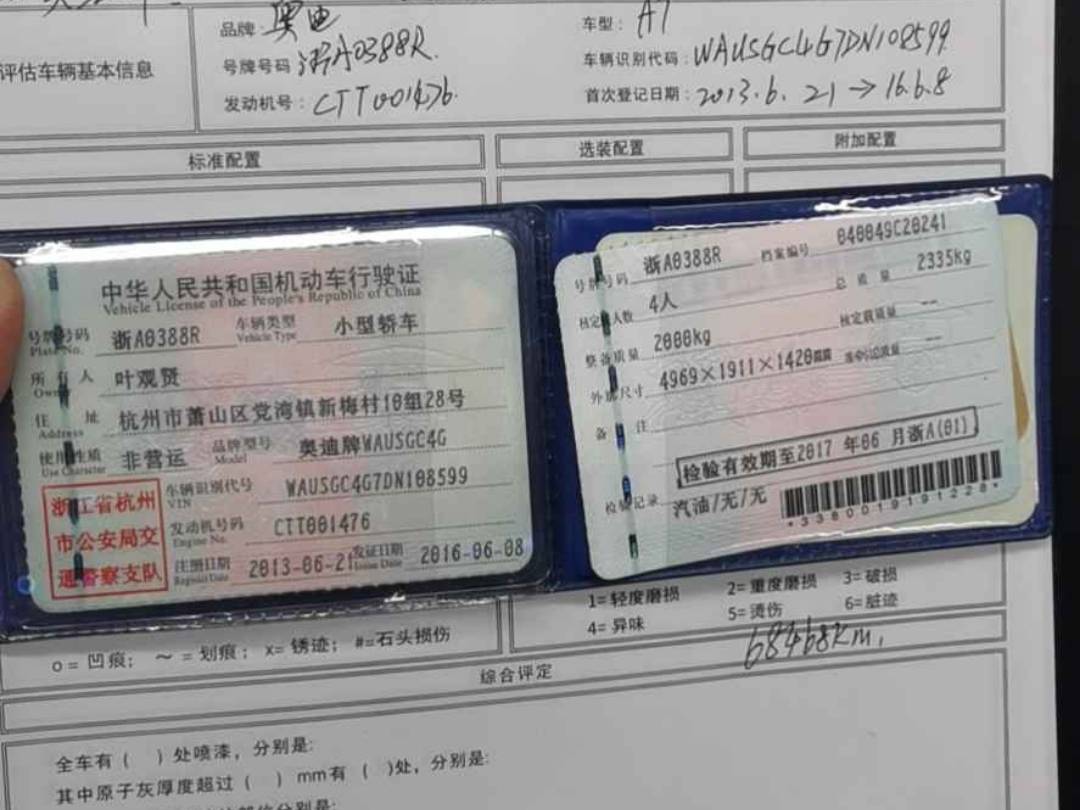 品牌: 奥迪
车型: A7
评估车辆基本信息
号牌号码 浙A0388R.
车辆识别代码: WAUSGC4G7DN108599
发动机号: CTT001476.
首次登记日期: 2013.6.21→16.6.8
标准配置
选装配置
附加配置
中华人民共和国机动车行驶证
Vehicle License of the People's Republic of China
号牌号码 浙A0388R 车辆类型 小型轿车
Plate No. Vehicle Type
所有人 叶观贤
Owner
住址 杭州市萧山区党湾镇新梅村10组28号
Address
使用性质 非营运 品牌型号 奥迪牌WAUSGC4G
Use Character Model
浙江省杭州
市公安局交
通警察支队
车辆识别代号 WAUSGC4G7DN108599
VIN
发动机号码 CTT001476
Engine No.
注册日期 2013-06-21 发证日期 2016-06-08
Register Date Issue Date
号牌号码 浙A0388R 档案编号 040049C20241
核定人数 4人 总质量 2335kg
整备质量 2000kg 核定载质量 --
外廓尺寸 4969×1911×1420mm 准牵引总质量 --
备注
检验有效期至2017年06月浙A(01)
检验记录 汽油/无/无
*3380019191228*
1=轻度磨损 2=重度磨损 3=破损
4=异味 5=烫伤 6=脏迹
o=凹痕; ～=划痕; x=锈迹; #=石头损伤
68468km,
综合评定
全车有( )处喷漆，分别是:
其中原子灰厚度超过( )mm有( )处，分别是: